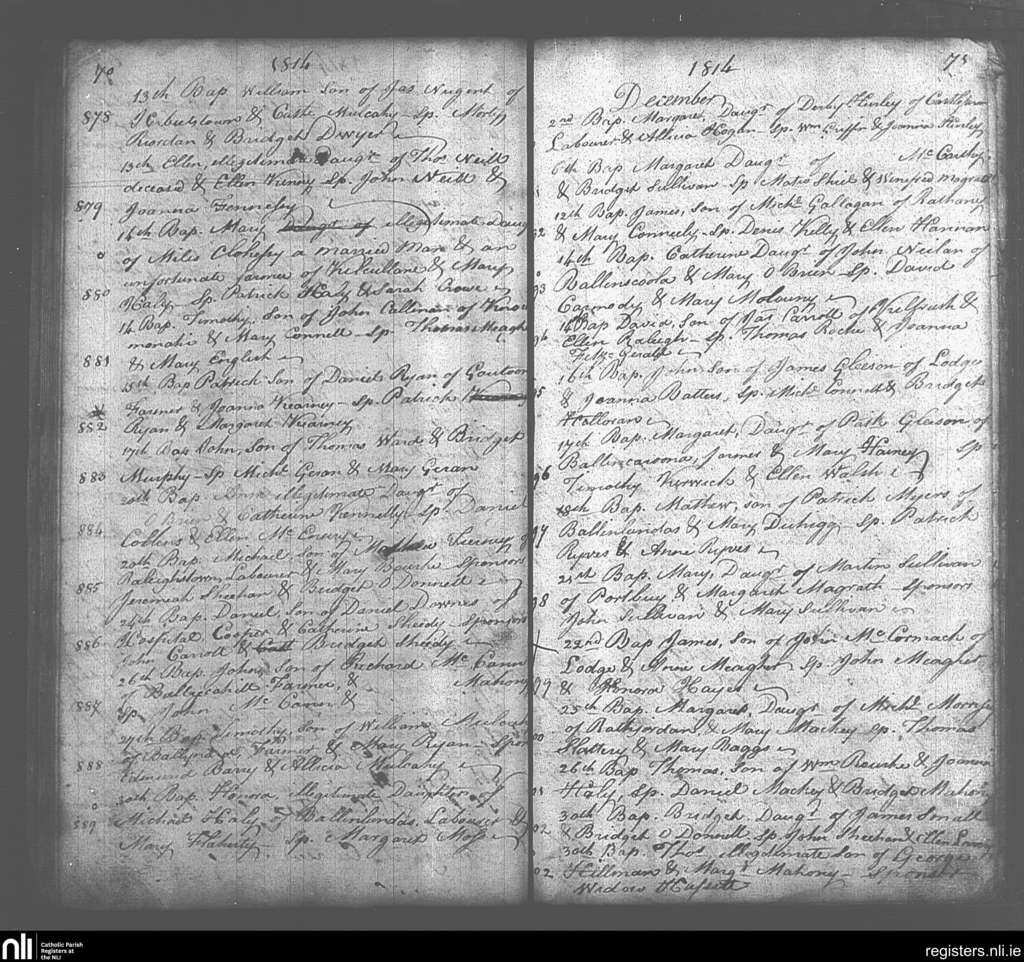 70
1814
13th Bap William Son of Jas. Nugent of
878 Herbertstown & Cathe. Mulcahy - Sp. Morty
Riordan & Bridget Dwyer
13th Ellen, illegitimate Daugr. of Thos. Neill
deceased & Ellen Sp. John Neill &
879 Joanna
14th Bap. Mary Daugr. of illegitimate Daugr
of Miles Clohesy a married Man & an
unfortunate farmer of & Mary
880 Healy Sp. Patrick Healy & Sarah Crowe
14 Bap. Timothy, Son of John Callinan of
& Mary Connell - Sp. Thomas
881 & Mary English
15th Bap Patrick Son of Daniel Ryan of
Farmer & Joanna Kearney - Sp. Patrick
882 Ryan & Margaret Kearney
17th Bap John, Son of Thomas Ward & Bridget
883 Murphy - Sp Michl. Geran & Mary Geran
20th Bap Ann illegitimate Daugr. of
O'Brien & Catherine Kennelly - Sp. Daniel
884 Collins & Ellen Mc
20th Bap. Michael Son of of
Raleighstown, Labourer & Mary Bourke Sponsors
885 Jeremiah Sheehan & Bridget O Donnell
24th Bap. Daniel Son of Daniel Downes of
Hospital Cooper & Catherine Sheedy - Sponsors
886 John Carroll & Bridget Sheedy
26th Bap. John, Son of Richard Mc Cann
of Ballycahill Farmer, & Mahony
887 Sp. John Mc &
27th Bap Timothy Son of William
of Farmer & Mary Ryan - Spon
888 Edmund Barry & Allicia Mulcahy
30th Bap. Honora illegitimate Daughter of
Michael Haly of Ballinlondas. Labourer &
889 Mary Flaherty. Sp. Margaret
1814
75
December
2nd Bap. Margaret, Daugr. of Derby Hurley of
Labourer & Allicia Hogan - Sp. Wm Griffin & Joanna Hurley
6th Bap Margaret Daugr. of Mc Carthy
& Bridget Sullivan - Sp Shiel & Winifred Magrath
12th Bap. James, Son of Michl. Gallagan of
92 & Mary Conneely - Sp. Denis Kelly & Ellen Hannan
14th Bap. Catherine Daugr. of John of
93 Ballinscoola & Mary O Brien Sp. David
Carmody & Mary Molouny
16 Bap David, Son of Jas Carroll of &
Ellen Raleigh - Sp. Thomas Roche & Joanna
Fitz-Gerald
16th Bap. John, Son of James Gleeson of Lodge
95 & Joanna Batters, Sp. Michl. & Bridget
Halloran
17th Bap. Margaret, Daugr. of Patk Gleason of
Ballincarona, farmer & Mary Hainey Sp
96 Timothy & Ellen Walsh
18th Bap. Mathew, Son of Patrick Myers of
97 Ballinlondas & Mary Duhigg - Sp. Patrick
Ryves & Anne Ryves
21st Bap. Mary, Daugr. of Martin Sullivan
98 of Portboy & Margaret Magrath - Sponsors
John Sullivan & Mary Sullivan
22nd Bap James, Son of John Mc Cormack of
Lodge & Anne Meagher Sp. John Meagher
99 & Honora Hayes
25th Bap. Margaret, Daugr. of Michl.
of Rathjordan, & Mary Mackey Sp. Thomas
00 Slattery & Mary Baggs
26th Bap Thomas, Son of Wm Rourke & Joanna
Haly, Sp. Daniel Mackey & Bridget
30th Bap. Bridget. Daugr. of James
& Bridget O Donnell Sp. John Sheehan & Ellen
30th Bap. Thos. illegitimate Son of George
02 Hillman & Margt. Mahony - Sponsor
Widow
nli
Catholic Parish
Registers at
the NLI
registers.nli.ie